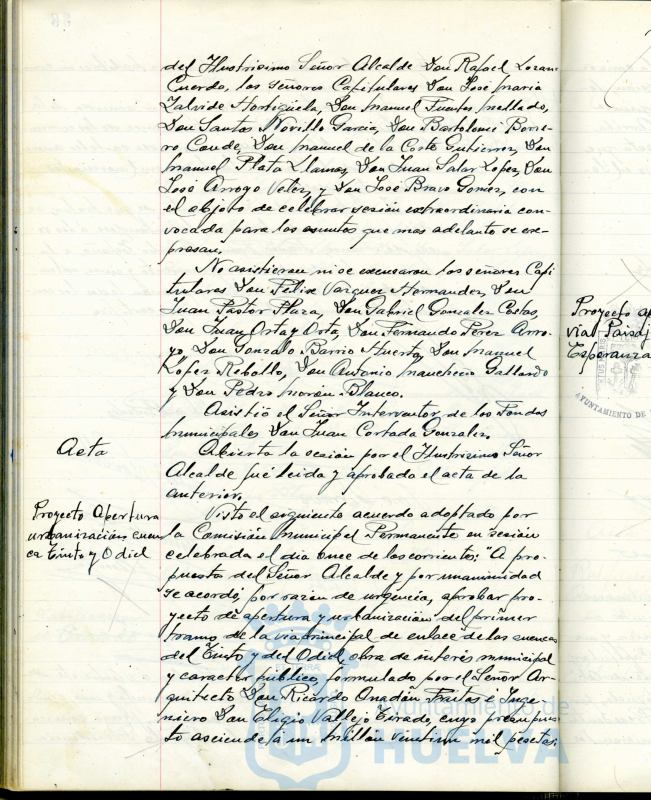 del Ilustrisimo Señor Alcalde Don Rafael Lozano
Cuerda, los señores Capitulares Don José Maria
Zalvide Hortigüela, Don Manuel Fuentes Mellado,
Don Santos Novillo Garcia, Don Bartolomé Borre-
ro Conde, Don Manuel de la Corte Gutierrez, Don
Manuel Plata Llamas, Don Juan Salas Lopez, Don
José Arroyo Velez, y Don José Bravo Gomez, con
el objeto de celebrar sesion extraordinaria con-
vocada para los asuntos que mas adelante se ex-
presan.
No asistieron ni se excusaron los señores Capi
tulares Don Felix Vazquez Hernandez, Don
Juan Pastor Plaza, Don Gabriel Gonzalez Costas,
Don Juan Orta y Orta, Don Fernando Perez Arro-
yo, Don Gonzalo Barrio Huerta, Don Manuel
Lopez Rebollo, Don Antonio Gallardo
y Don Pedro Morán Blanco.
Asistió el Señor Interventor de los Fondos
Municipales Don Juan Cortada Gonzalez.
Acta
Abierta la sesion por el Ilustrisimo Señor
Alcalde fué leida y aprobada el acta de la
anterior.
Proyecto Apertura
urbanización cuen
ca Tinto y Odiel
Visto el siguiente acuerdo adoptado por
la Comisión Municipal Permanente en sesión
celebrada el dia once de los corrientes: "A pro-
puesta del Señor Alcalde y por unanimidad
se acordó, por razon de urgencia, aprobar pro-
yecto de apertura y urbanización del primer
tramo de la via principal de enlace de las cuencas
del Tinto y del Odiel, obra de interés municipal
y caracter público, formulado por el Señor Ar-
quitecto Don Ricardo Anadón e Inge
niero Don Eligio Vallejo Tirado, cuyo presupues
to asciende a un millón veintiun mil pesetas;
Proyecto
via
Esperanza
AYUNTAMIENTO DE
Ayuntamiento de
HUELVA